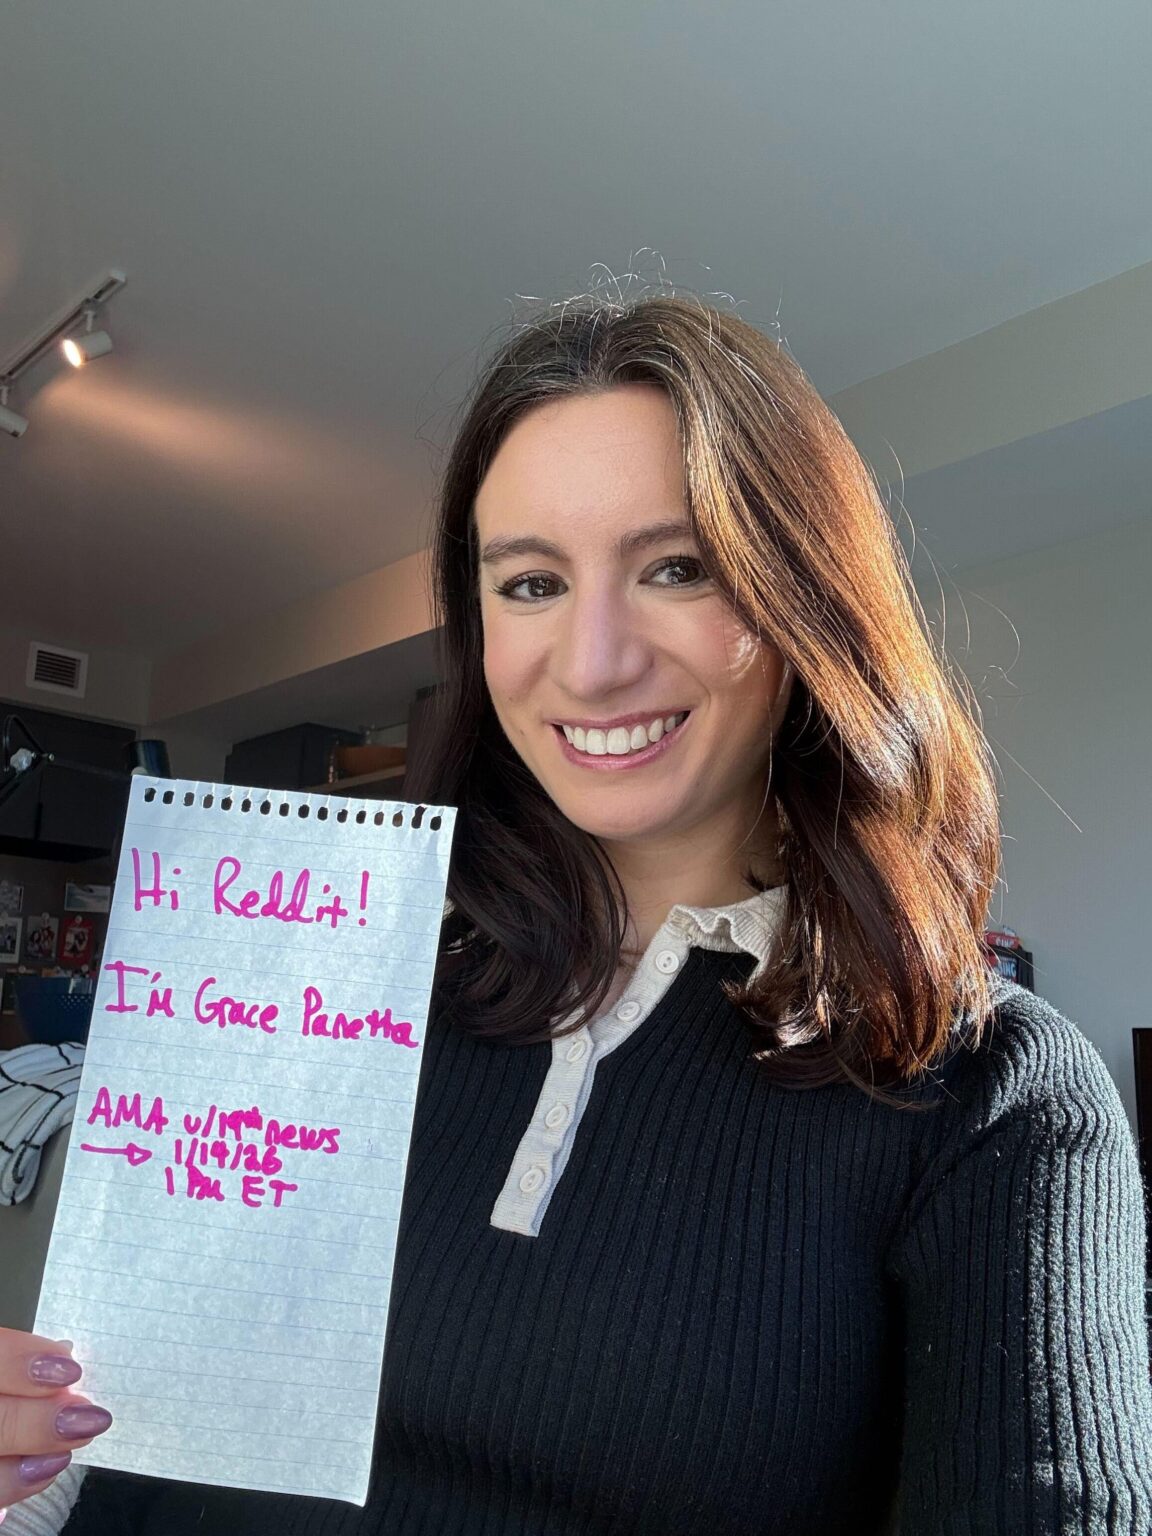 Hi Reddit!
I'm Grace Panetta
AMA u/19thnews
→ 1/14/26
1 PM ET